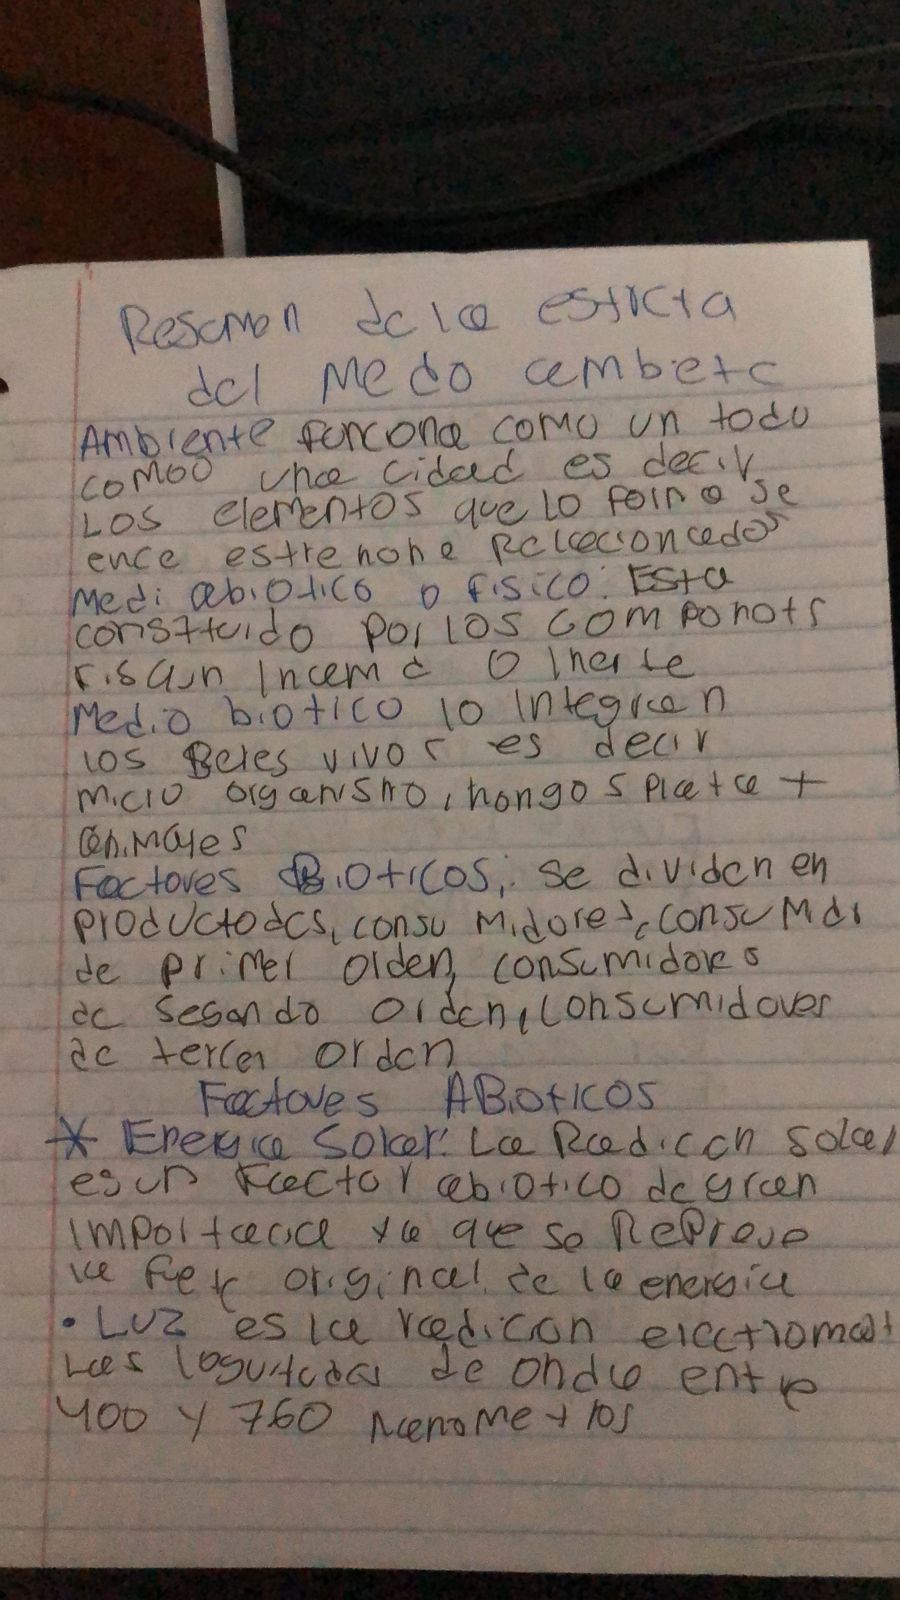 Resumen de la estrcta
del Medo ambiete
Ambiente funcona como un todo
comoo una cidad es decir
Los elementos que lo forma se
ence estrenohe Relacioncados
Medi abiotico o fisico: Esta
constituido por los componots
o inerte
Medio biotico lo integran
los Seres vivos es decir
micro organismo, hongos planta +
animales
Factores Bioticos, se dividen en
productodes, consumidores, consumdr
de primer orden, consumidores
de segundo orden, consumidores
de tercer orden
Factores ABioticos
* Energia Solar: La Radicon solar
es un Factor abiotico de gran
importacia ya que se Repreve
la original de la energia
• Luz es la radicion electromat
Las de onda entre
400 y 760 nanometros